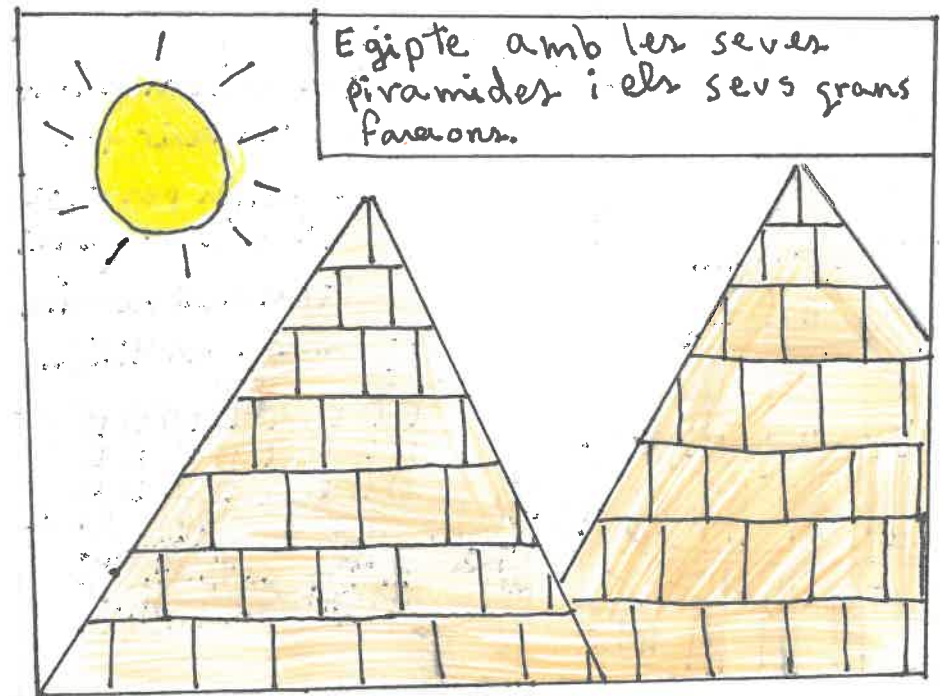 Egipte amb les seves
piramides i els seus grans
faraons.